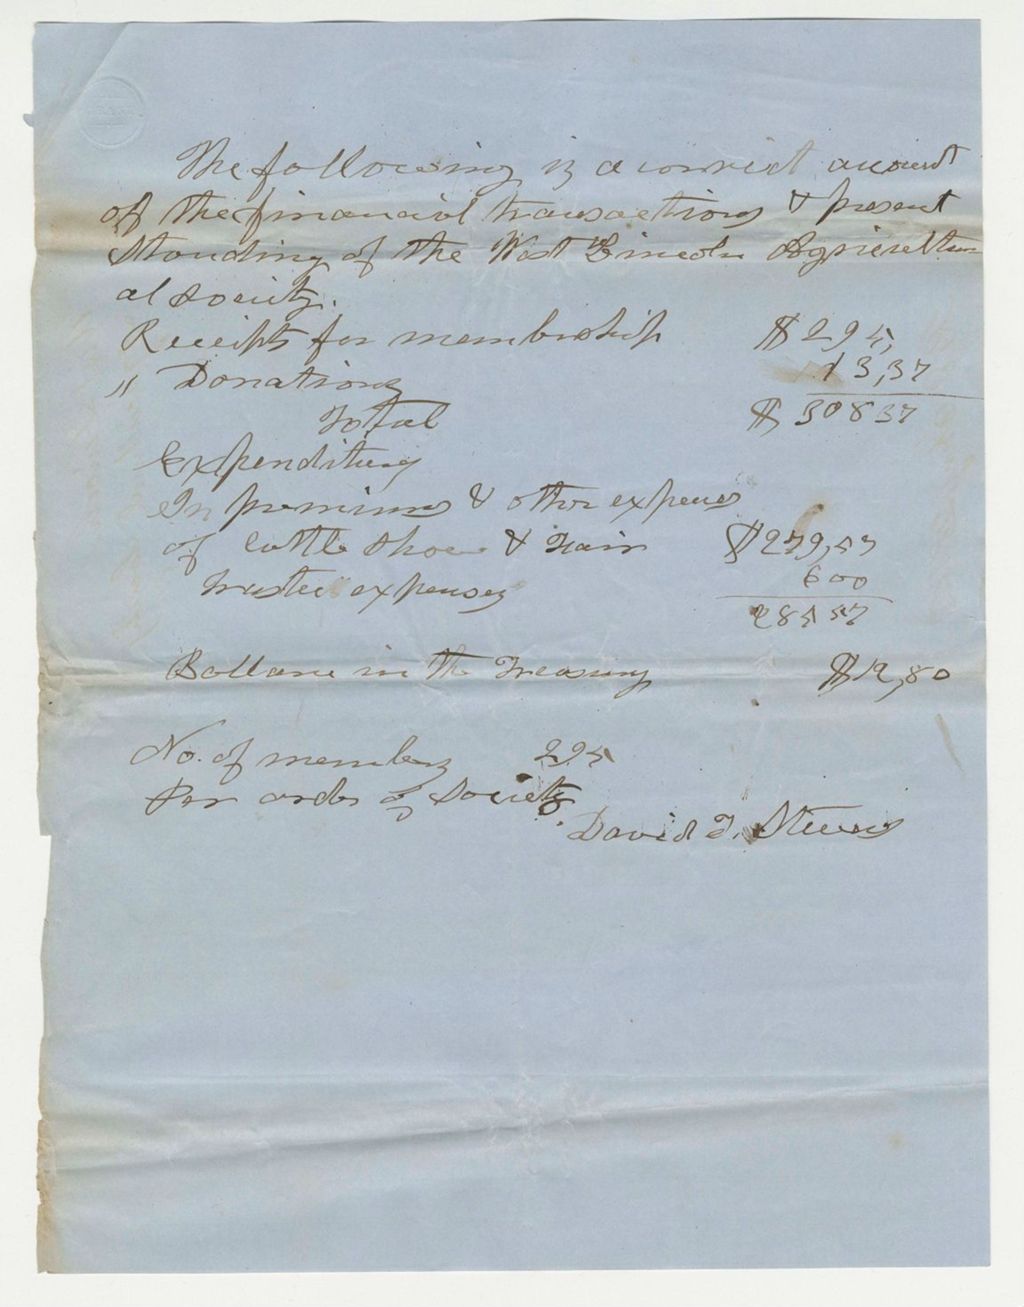 The following is a correct account
of the financial transactions & present
standing of the West Lincoln Agricultur
al Society.
Receipts for membership $295,
" Donations 13,37
Total $30837
Expenditures
In premiums & other expenses
of Cattle Show & Fair $279,57
Trustee expenses 600
28557
Ballance in the Treasury $12,80
No. of members 295
Per order of Society.
David T. Stevens